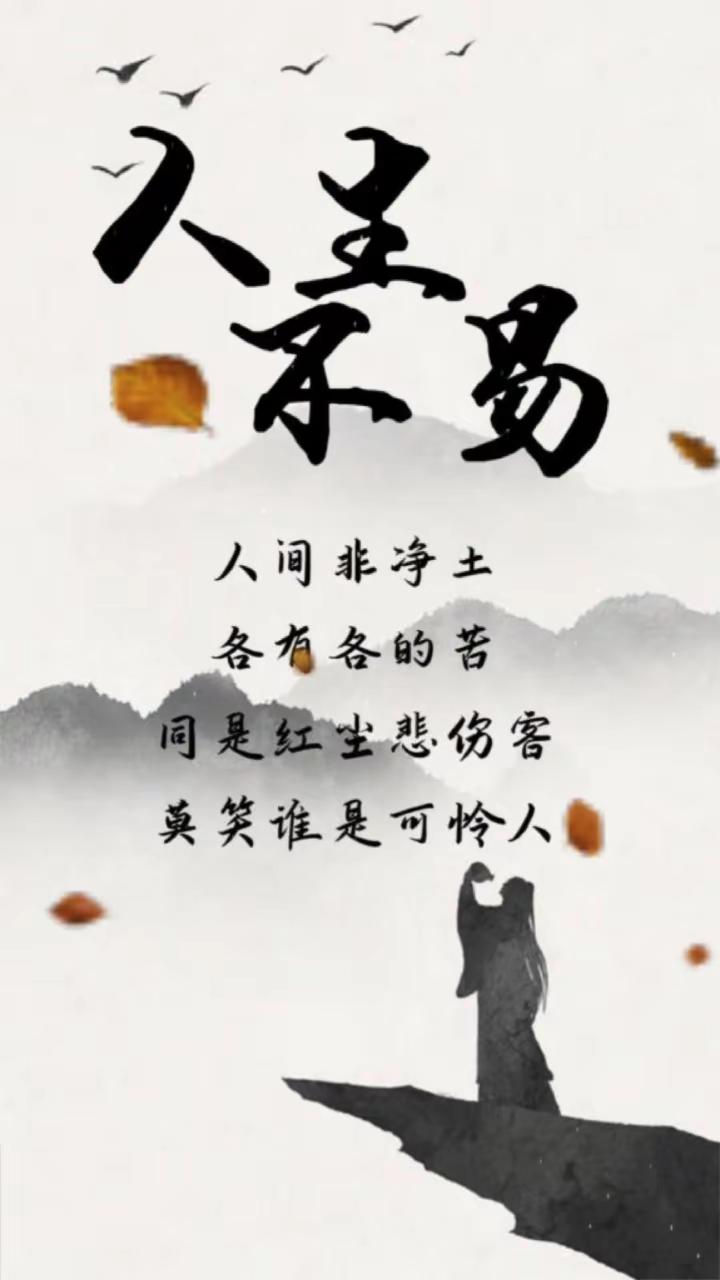 人生
不易
人间非净土
各有各的苦
同是红尘悲伤客
莫笑谁是可怜人